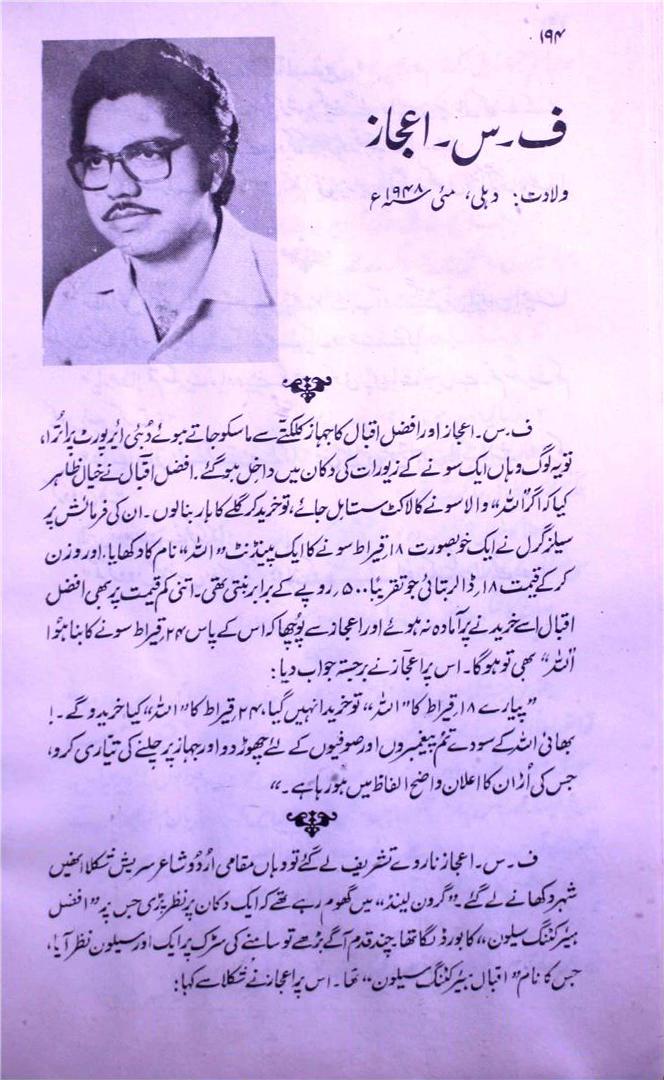 ۱۹۴
ف۔ س۔ اعجاز
ولادت: دہلی، مئی ۱۹۴۸ء
ف۔ س۔ اعجاز اور افضل اقبال کا جہاز کلکتے سے ماسکو جاتے ہوئے دُبئی ایرپورٹ پر اُترا،
تو یہ لوگ وہاں ایک سونے کے زیورات کی دکان میں داخل ہو گئے۔ افضل اقبال نے خیال ظاہر
کیا کہ اگر "اللہ" والا سونے کا لاکٹ سستا مل جائے، تو خرید کر گلے کا ہار بنالوں۔ ان کی فرمائش پر
سیلز گرل نے ایک خوبصورت ۱۸؍ قیراط سونے کا ایک پینڈنٹ "اللہ" نام کا دکھایا۔ اور وزن
کر کے قیمت ۱۸؍ ڈالر بتائی جو تقریباً ۵۰۰؍ روپے کے برابر بنتی تھی۔ اتنی کم قیمت پر بھی افضل
اقبال اسے خریدنے پر آمادہ نہ ہوئے اور اعجاز سے پوچھا کہ اس کے پاس ۲۴؍ قیراط سونے کا بنا ہوا
"اللہ" بھی تو ہوگا۔ اس پر اعجاز نے برجستہ جواب دیا:
"پیارے ۱۸؍ قیراط کا "اللہ" تو خریدا نہیں گیا، ۲۴؍ قیراط کا "اللہ" کیا خریدو گے۔!
بھائی اللہ کے سودے تم پیغمبروں اور صوفیوں کے لئے چھوڑ دو اور جہاز پر چلنے کی تیاری کرو،
جس کی اُڑان کا اعلان واضح الفاظ میں ہو رہا ہے۔"
ف۔ س۔ اعجاز ناروے تشریف لے گئے تو وہاں مقامی اُردو شاعر سریش شکلا انھیں
شہر دکھانے لے گئے۔ "گرون لینڈ" میں گھوم رہے تھے کہ ایک دکان پر نظر پڑی جس پر "افضل
ہیئر کٹنگ سیلون" کا بورڈ لگا تھا۔ چند قدم آگے بڑھے تو سامنے کی سڑک پر ایک اور سیلون نظر آیا،
جس کا نام "اقبال ہیئر کٹنگ سیلون" تھا۔ اس پر اعجاز نے شکلا سے کہا: